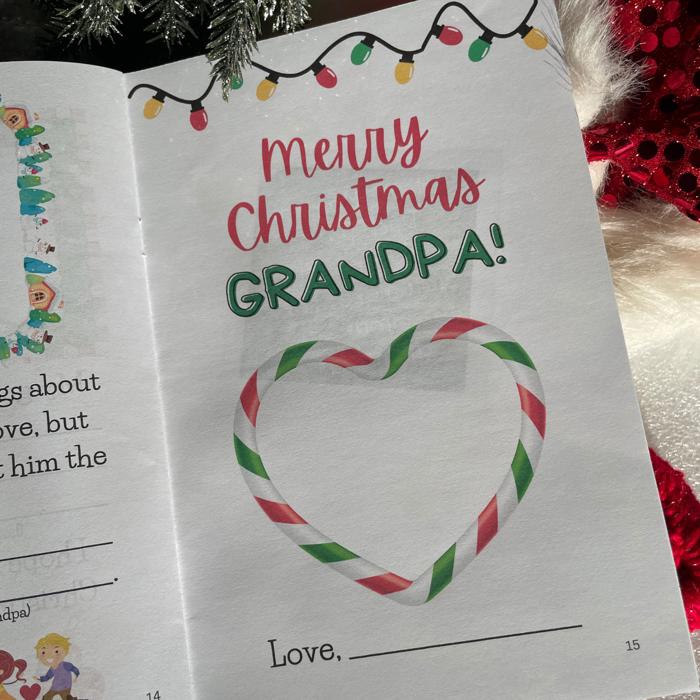 gs about
ove, but
t him the
.
ndpa)
14
Merry
Christmas
GRANDPA!
Love, ____________
15